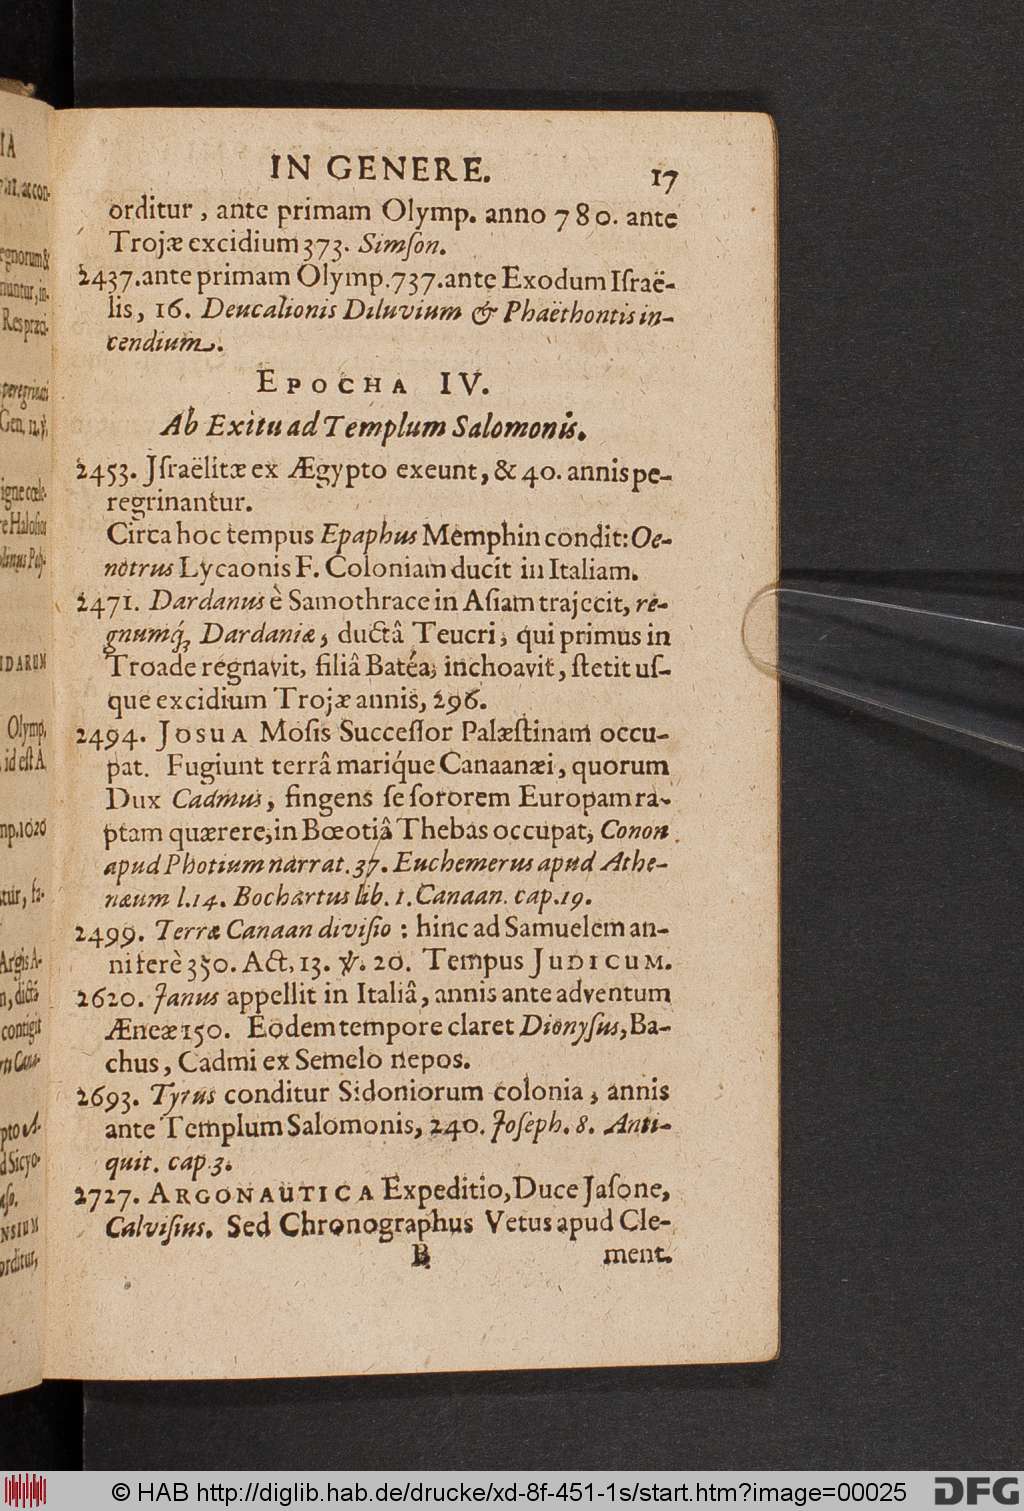 IN GENERE. 17
orditur, ante primam Olymp. anno 780. ante
Trojæ excidium 373. Simſon.
2437. ante primam Olymp. 737. ante Exodum Iſraë-
lis, 16. Deucalionis Diluvium & Phaëthontis in-
cendium.
EPOCHA IV.
Ab Exitu ad Templum Salomonis.
2453. Jſraëlitæ ex Ægypto exeunt, & 40. annis pe-
regrinantur.
Circa hoc tempus Epaphus Memphin condit: Oe-
notrus Lycaonis F. Coloniam ducit in Italiam.
2471. Dardanus è Samothrace in Aſiam trajecit, re-
gnumq́; Dardaniæ, ductâ Teucri, qui primus in
Troade regnavit, filiâ Batéa, inchoavit, ſtetit uſ-
que excidium Trojæ annis, 296.
2494. JOSUA Moſis Succeſſor Palæſtinam occu-
pat. Fugiunt terrâ mariq́ue Canaanæi, quorum
Dux Cadmus, fingens ſe ſororem Europam ra-
ptam quærere, in Bœotiâ Thebas occupat, Conon
apud Photium narrat. 37. Euchemerus apud Athe-
næum l. 14. Bochartus lib. 1. Canaan. cap. 19.
2499. Terræ Canaan diviſio: hinc ad Samuelem an-
ni ferè 350. Act. 13. ℣. 20. Tempus JUDICUM.
2620. Janus appellit in Italiâ, annis ante adventum
Æneæ 150. Eodem tempore claret Dionyſus, Ba-
chus, Cadmi ex Semelo nepos.
2693. Tyrus conditur Sidoniorum colonia, annis
ante Templum Salomonis, 240. Joſeph. 8. Anti-
quit. cap. 3.
2727. ARGONAUTICA Expeditio, Duce Jaſone,
Calviſius. Sed Chronographus Vetus apud Cle-
B ment.
© HAB http://diglib.hab.de/drucke/xd-8f-451-1s/start.htm?image=00025
DFG